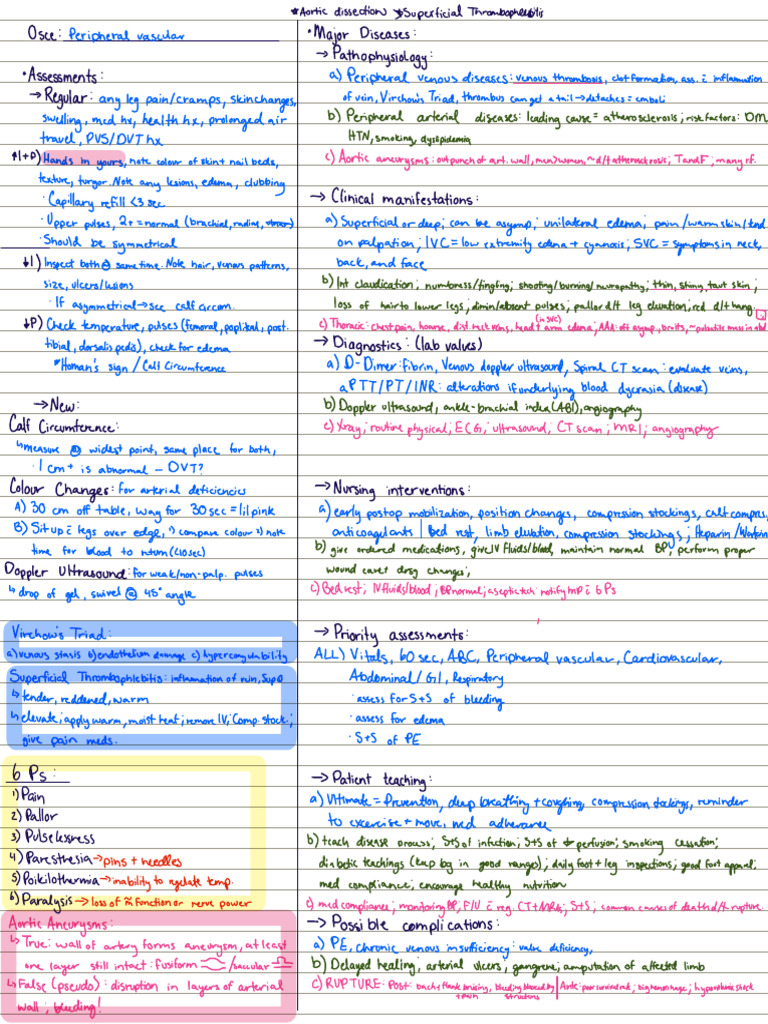 *Aortic dissection *Superficial Thrombophlebitis
Osce: Peripheral vascular
• Assessments:
→ Regular: any leg pain/cramps, skin changes,
swelling, med hx, health hx, prolonged air
travel, PVS/DVT hx
↑I+P) Hands in yours, note colour of skin + nail beds,
texture, turgor. Note any lesions, edema, clubbing
• Capillary refill <3 sec
• Upper pulses, 2+ = normal (brachial, radial,
• Should be symmetrical
↓I) Inspect both @ same time. Note hair, venous patterns,
size, ulcers/lesions
• If asymmetrical → see calf circum.
↓P) Check temperature, pulses (femoral, popliteal, post.
tibial, dorsalis pedis), check for edema
*Homan's sign / Calf Circumference
→ New:
Calf Circumference:
↳ measure @ widest point, same place for both,
• 1 cm+ is abnormal – DVT?
Colour Changes: for arterial deficiencies
A) 30 cm off table, wag for 30 sec = lil pink
B) Sit up c̄ legs over edge, 1) compare colour 2) note
time for blood to return (<10sec)
Doppler Ultrasound: for weak/non-palp. pulses
↳ drop of gel, swivel @ 45° angle
Virchow's Triad:
a) venous stasis b) endothelium damage c) hypercoagulability
Superficial Thrombophlebitis: inflamation of vein,
↳ tender, reddened, warm
↳ elevate; apply warm, moist heat; remove IV; Comp. stock.;
give pain meds.
6 Ps:
1) Pain
2) Pallor
3) Pulselessness
4) Paresthesia → pins + needles
5) Poikilothermia → inability to regulate temp.
6) Paralysis → loss of function or nerve power
Aortic Aneurysms:
↳ True: wall of artery forms aneurysm, at least
one layer still intact: fusiform / saccular
↳ False (pseudo): disruption in layers of arterial
wall; bleeding!
• Major Diseases:
→ Pathophysiology:
a) Peripheral venous diseases: venous thrombosis, clot formation, ass. c̄ inflamation
of vein, Virchow's Triad, thrombus can get a tail → detaches = emboli
b) Peripheral arterial diseases: leading cause = atherosclerosis; risk factors: DM,
HTN, smoking, dyslipidemia
c) Aortic aneurysms: outpunch of art. wall, men>women, ~d/t atherosclerosis; T and F; many rf.
→ Clinical manifestations:
a) Superficial or deep; can be asymp; unilateral edema; pain/warm skin/tend
on palpation; IVC = low extremity edema + cyanosis; SVC = symptoms in neck,
back, and face
b) Int claudication; numbness/tingling; shooting/burning/neuropathy; thin, shiny, taut skin;
loss of hair to lower legs; dimin/absent pulses; pallor d/t leg elevation; red d/t hang
(in SVC)
c) Thoracic: chest pain, hoarse, dist. neck veins, head + arm edema; AAA: oft asymp, bruits, ~pulsatile mass in abd
→ Diagnostics: (lab valves)
a) D-Dimer: fibrin, Venous doppler ultrasound, Spiral CT scan: evaluate veins,
aPTT/PT/INR: alterations if underlying blood dyscrasia (disease)
b) Doppler ultrasound, ankle-brachial index (ABI), angiography
c) Xray; routine physical; ECG; ultrasound; CT scan; MRI; angiography
→ Nursing interventions:
a) early postop mobilization, position changes, compression stockings, calf compres,
anticoagulants | Bed rest, limb elevation, compression stockings; Heparin/
b) give ordered medications, give IV fluids/blood, maintain normal BP, perform proper
wound care + drsg changes;
c) Bedrest; IV fluids/blood; BP normal; aseptic tech notify MD c̄ 6 Ps
→ Priority assessments:
ALL) Vitals, 60 sec, ABC, Peripheral vascular, Cardiovascular,
Abdominal/GI, Respiratory
• assess for S+S of bleeding
• assess for edema
• S+S of PE
→ Patient teaching:
a) Ultimate = Prevention, deep breathing + coughing, compression stockings, reminder
to exercise + move, med adherance
b) teach disease process; S+S of infection; S+S of perfusion; smoking cessation;
diabetic teachings (keep bg in good ranges); daily foot + leg inspections; good foot apparel;
med compliance; encourage healthy nutrition
c) med compliance; monitoring BP, F/U c̄ reg. CT + MRIs; S+S; common causes of death d/t rupture.
→ Possible complications:
a) PE, chronic venous insufficiency: valve deficiency,
b) Delayed healing, arterial ulcers, gangrene; amputation of affected limb
c) RUPTURE: Post: back/flank bruising, + pain bleeding blocked by structures | Ante: poor survival rate; big hemorrhage; hypovolemic shock